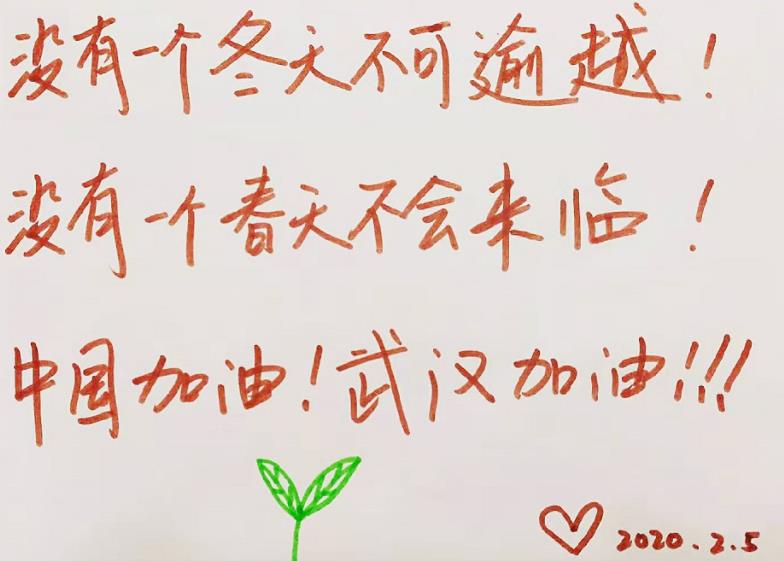 没有一个冬天不可逾越！
没有一个春天不会来临！
中国加油！武汉加油!!!
2020.2.5